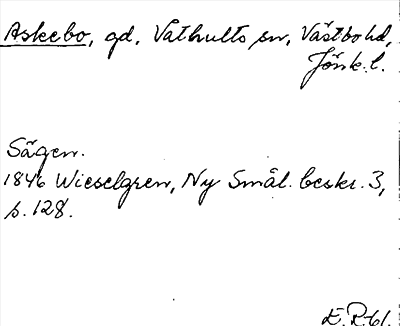 Askebo, gd, Våthults sn, Västbo hd,
Jönk. l.
Sägen.
1846 Wieselgren, Ny Smål. beskr. 3,
s. 128.